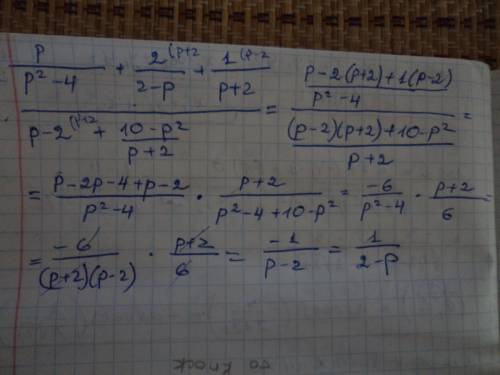 p/(p²-4) + 2(p+2/(2-p) + 1(p-2/(p+2) = (p-2(p+2)+1(p-2))/(p²-4) =
p-2(p+2 + (10-p²)/(p+2) ((p-2)(p+2)+10-p²)/(p+2)
= (p-2p-4+p-2)/(p²-4) · (p+2)/(p²-4+10-p²) = -6/(p²-4) · (p+2)/6
= -6/((p+2)(p-2)) · (p+2)/6 = -1/(p-2) = 1/(2-p)